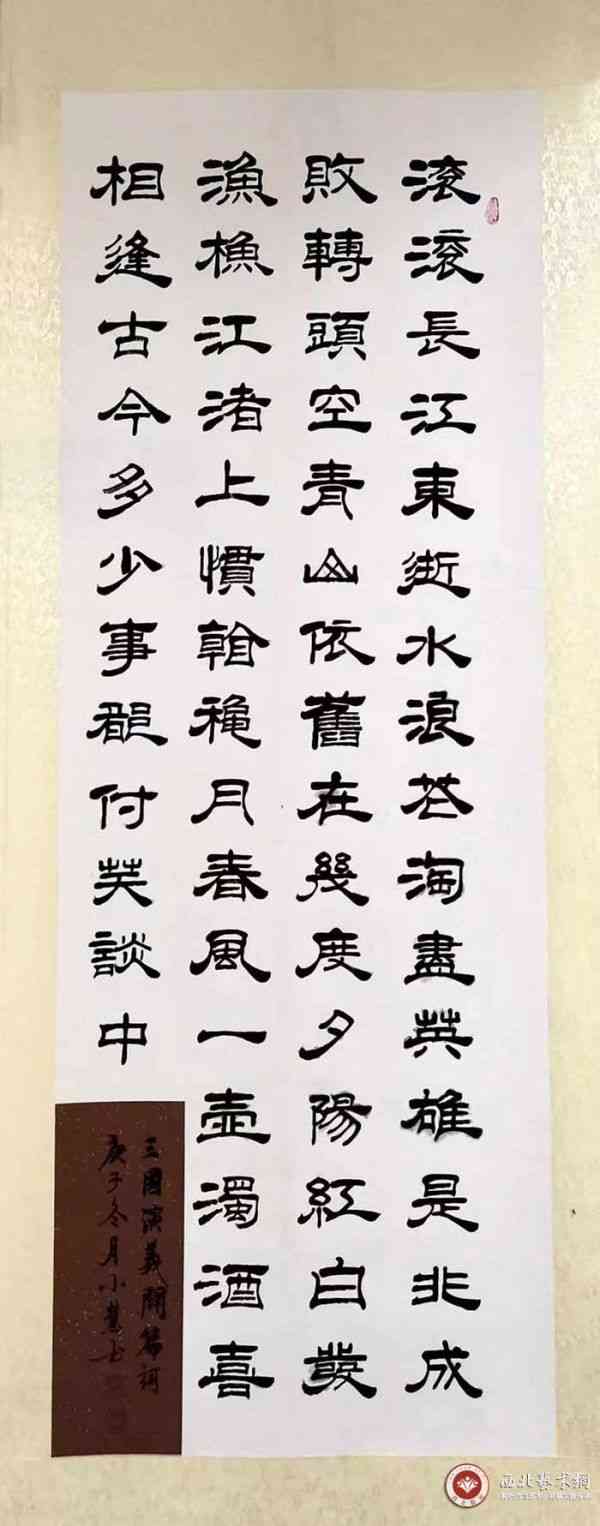 滚滚長江東逝水浪花淘盡英雄是非成
敗轉頭空青山依舊在幾度夕陽紅白發
漁樵江渚上慣看穐月春風一壺濁酒喜
相逢古今多少事都付笑談中
三國演義開篇詞
庚子冬月小慧书